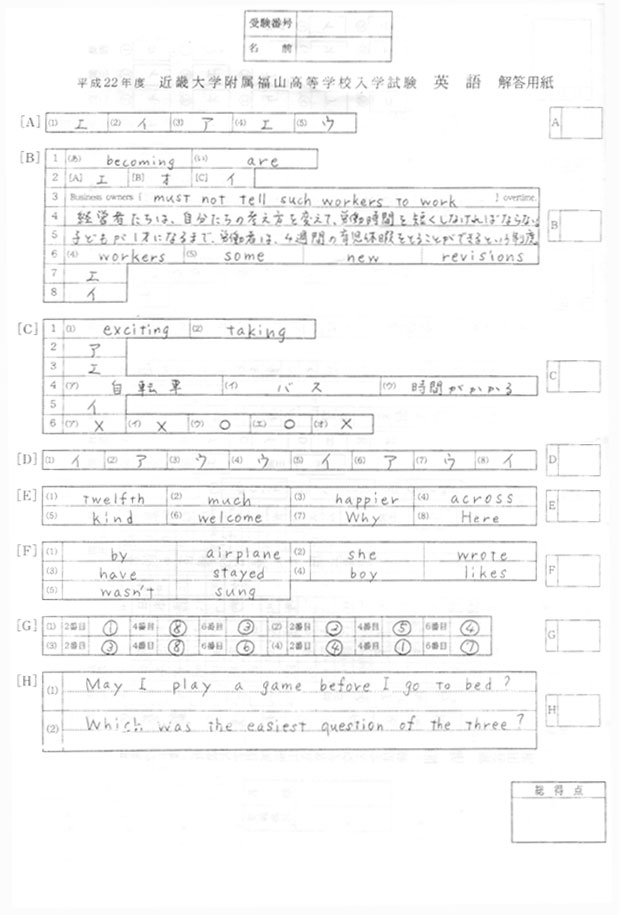 受験番号
名 前
平成22年度 近畿大学附属福山高等学校入学試験 英 語 解答用紙
[A] (1) エ (2) イ (3) ア (4) エ (5) ウ A
[B] 1 (あ) becoming (い) are
2 [A] エ [B] オ [C] イ
3 Business owners [ must not tell such workers to work ] overtime.
4 経営者たちは、自分たちの考え方を変えて、労働時間を短くしなければならない B
5 子どもが1才になるまで、労働者は、4週間の育児休暇をとることができるという制度
6 (4) workers (5) some new revisions
7 エ
8 イ
[C] 1 (1) exciting (2) taking
2 ア
3 エ
4 (ア) 自転車 (イ) バス (ウ) 時間がかかる C
5 イ
6 (ア) × (イ) × (ウ) ○ (エ) ○ (オ) ×
[D] (1) イ (2) ア (3) ウ (4) ウ (5) イ (6) ア (7) ウ (8) イ D
[E] (1) twelfth (2) much (3) happier (4) across E
(5) kind (6) welcome (7) Why (8) Here
[F] (1) by airplane (2) she wrote F
(3) have stayed (4) boy likes
(5) wasn't sung
[G] (1) 2番目 ① 4番目 ⑧ 6番目 ③ (2) 2番目 ② 4番目 ⑤ 6番目 ④ G
(3) 2番目 ③ 4番目 ⑧ 6番目 ⑥ (4) 2番目 ④ 4番目 ① 6番目 ⑦
[H] (1) May I play a game before I go to bed?
(2) Which was the easiest question of the three? H
総得点